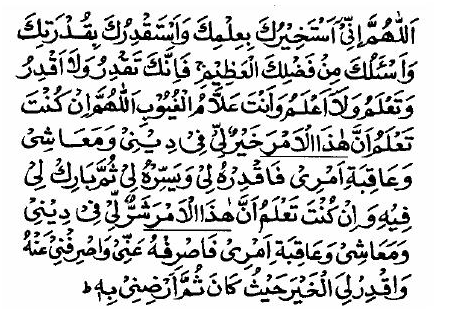 اَللّٰهُمَّ اِنِّىْ اَسْتَخِيْرُكَ بِعِلْمِكَ وَاَسْتَقْدِرُكَ بِقُدْرَتِكَ
وَاَسْئَلُكَ مِنْ فَضْلِكَ الْعَظِيْمِ فَاِنَّكَ تَقْدِرُ وَلَا اَقْدِرُ
وَتَعْلَمُ وَلَا اَعْلَمُ وَاَنْتَ عَلَّامُ الْغُيُوْبِ اَللّٰهُمَّ اِنْ كُنْتَ
تَعْلَمُ اَنَّ هٰذَا الْاَمْرَ خَيْرٌ لِّىْ فِىْ دِيْنِىْ وَمَعَاشِىْ
وَعَاقِبَةِ اَمْرِىْ فَاقْدِرْهُ لِىْ وَيَسِّرْهُ لِىْ ثُمَّ بَارِكْ لِىْ
فِيْهِ وَاِنْ كُنْتَ تَعْلَمُ اَنَّ هٰذَا الْاَمْرَ شَرٌّ لِّىْ فِىْ دِيْنِىْ
وَمَعَاشِىْ وَعَاقِبَةِ اَمْرِىْ فَاصْرِفْهُ عَنِّىْ وَاصْرِفْنِىْ عَنْهُ
وَاقْدِرْ لِىَ الْخَيْرَ حَيْثُ كَانَ ثُمَّ اَرْضِنِىْ بِهٖ ط